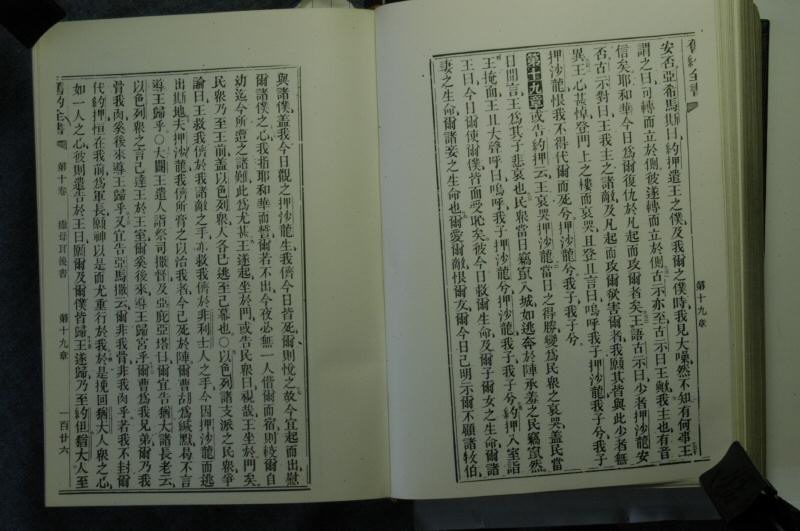 舊約全書
第十九章
安否亞希馬斯曰約押遣王之僕及我爾之僕時我見大噪然不知有何事王
謂之曰可轉而立於側彼遂轉而立於側古示亦至古示曰王歟我主也有音
信矣耶和華今日爲爾復仇於凡起而攻爾者矣王語古示曰少者押沙龍安
否古示對曰王我主之諸敵及凡起而攻爾欲害爾者我願其皆與此少者無
異王心甚悼登門上之樓而哀哭且登且言曰嗚呼我子押沙龍我子兮我子
押沙龍恨我不得代爾而死兮押沙龍兮我子我子兮
第十九章 或告約押云王哀哭押沙龍當日之得勝變爲民衆之哀哭蓋民當
日聞言王爲其子悲哀也民衆當日竊竄入城如逃奔於陣承羞之民竊竄然
王掩面王且大聲呼曰嗚呼我子押沙龍兮押沙龍我子我子兮約押入室詣
王曰今日爾使爾僕皆面受恥矣彼今日救爾生命及爾子爾女之生命爾諸
妻之生命爾諸妾之生命也爾愛爾敵恨爾友爾今日己明示爾不顧諸牧伯
與諸僕蓋我今日觀之押沙龍生我儕今日皆死爾則悅之故今宜起而出慰
爾諸僕之心我指耶和華而誓爾若不出今夜必無一人偕爾而宿則較爾自
幼迄今所遭之諸難此爲尤甚王遂起坐於門或告民衆曰視哉王坐於門矣
民衆乃至王前蓋以色列衆人各已逃至己幕也○以色列諸支派之民衆爭
論曰王救我儕於我諸敵之手亦救我儕於非利士人之手今因押沙龍而逃
出斯地夫押沙龍我儕所膏之以治我者今己死於陣爾曹胡爲緘默曷不言
導王歸乎○大闢王遣人詣祭司撒督及亞庇亞塔曰爾宜告猶大諸長老云
以色列衆之言己達王於王室爾奚後來導王歸宮乎爾曹爲我兄弟爾乃我
骨我肉奚後來導王歸乎又宜告亞馬撒云爾非我骨非我肉乎若我不封爾
代約押恒在我前爲軍長願神以是而尤重行於我於是挽回猶大人衆之心
如一人之心彼則遣告於王曰願爾及爾僕皆歸王遂歸乃至約但猶大人至
舊約全書 第十卷 撒母耳後書 第十九章 一百廿六